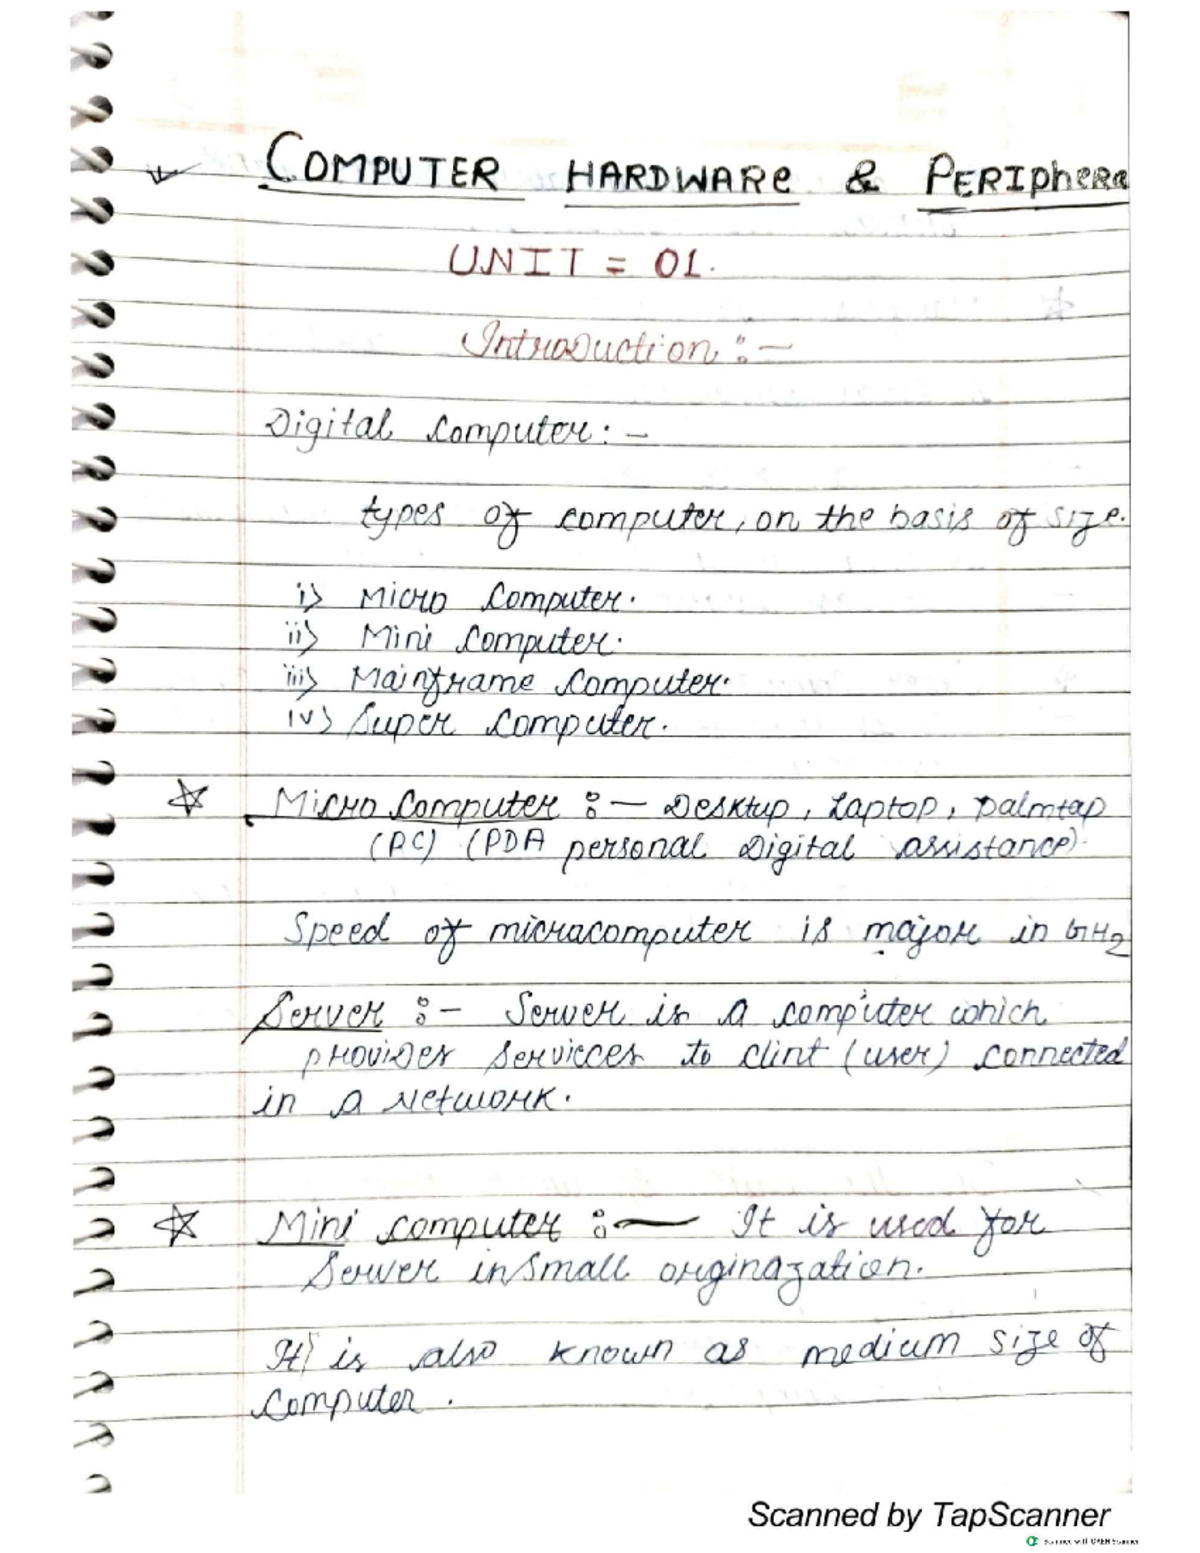 COMPUTER HARDWARe & PERIPhera
UNIT = 01.
Introduction :-
Digital Computer : -
types of computer, on the basis of size.
i) Micro Computer.
ii) Mini Computer.
iii) Mainframe Computer.
iv) Super Computer.
☆ Micro Computer :- Desktup, Laptop, palmtap
(PC) (PDA personal Digital assistance).
Speed of micracomputer is major in GHz
Server :- Server is a computer which
provider servicces to clint (user) connected
in a Network.
☆ Mini computer :- It is used for
Server in small orginazation.
It is also known as medium size of
Computer.
Scanned by TapScanner
Scanned with OKEN Scanner